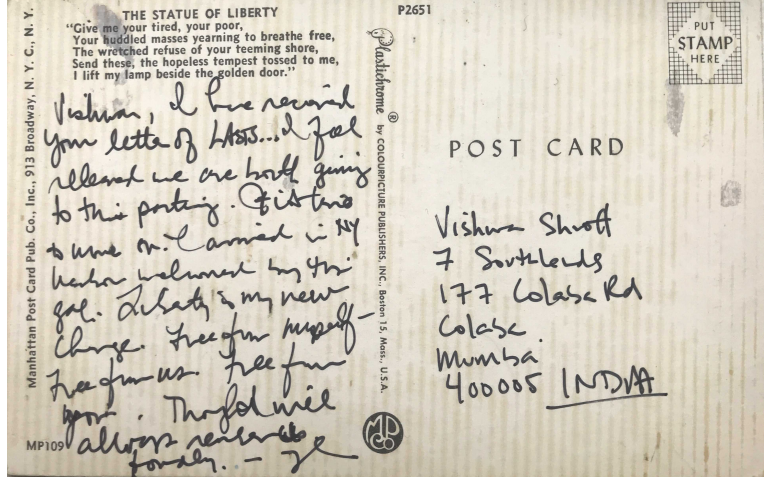 THE STATUE OF LIBERTY
"Give me your tired, your poor,
Your huddled masses yearning to breathe free,
The wretched refuse of your teeming shore,
Send these, the hopeless tempest tossed to me,
I lift my lamp beside the golden door."
Vishwa, I have received
your letter of LASTS... I feel
released we are both giving
to this parting. It is time
to move on. I arrived in NY
harbor welcomed by this
gal. Liberty is my new
change. Free from myself -
Free from us. Free from
you. Though I will
always remember us
fondly. -
MP109
Manhattan Post Card Pub. Co., Inc., 913 Broadway, N. Y. C., N. Y.
P2651
Plastichrome ® by COLOURPICTURE PUBLISHERS, INC., Boston 15, Mass., U.S.A.
MPCO
PUT
STAMP
HERE
POST CARD
Vishwa Shroff
7 Southlands
177 Colaba Rd
Colaba
Mumbai
400005 INDIA